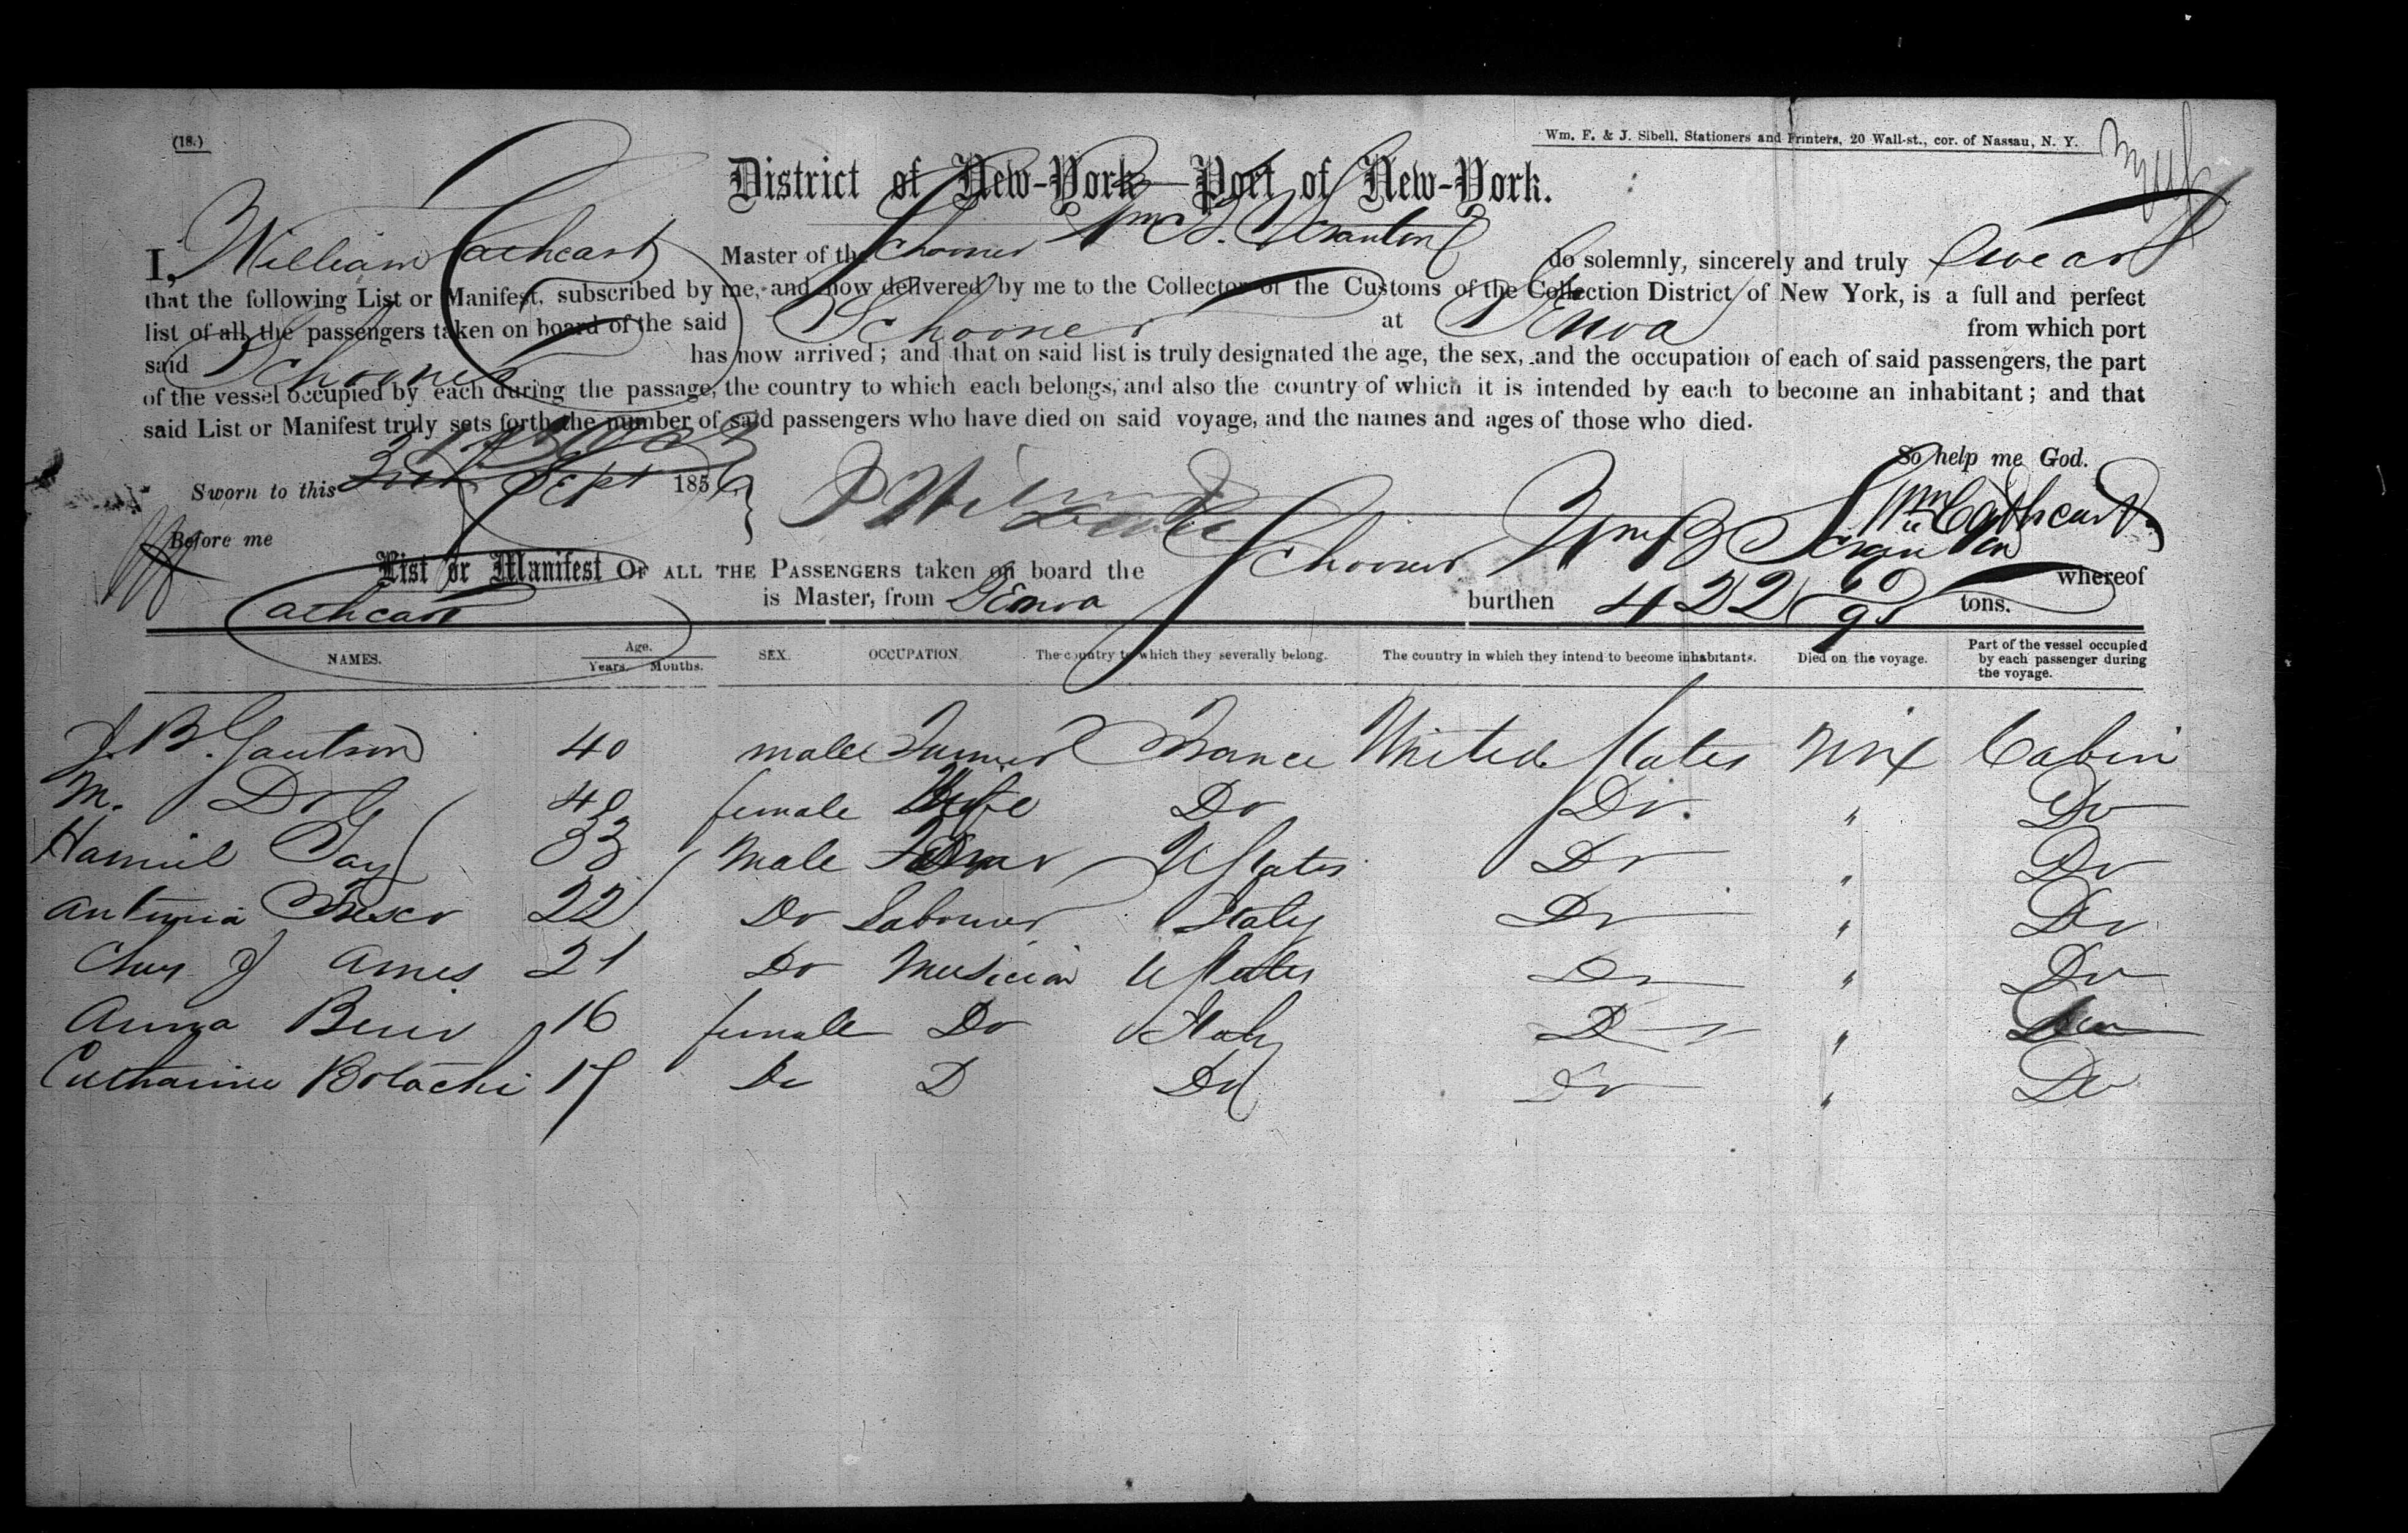 (18.)
Wm. F. & J. Sibell, Stationers and Printers, 20 Wall-st., cor. of Nassau, N. Y.
District of New-York—Port of New-York.
I, William Cathcart Master of the Schooner Wm B. Scranton do solemnly, sincerely and truly Swear
that the following List or Manifest, subscribed by me, and now delivered by me to the Collector of the Customs of the Collection District of New York, is a full and perfect
list of all the passengers taken on board of the said Schooner at Genoa from which port
said Schooner has now arrived; and that on said list is truly designated the age, the sex, and the occupation of each of said passengers, the part
of the vessel occupied by each during the passage, the country to which each belongs, and also the country of which it is intended by each to become an inhabitant; and that
said List or Manifest truly sets forth the number of said passengers who have died on said voyage, and the names and ages of those who died.
So help me God.
Sworn to this Sept 1856
Wm Cathcart
Before me
List or Manifest OF ALL THE PASSENGERS taken on board the Schooner Wm B Scranton whereof
Cathcart is Master, from Genoa burthen 422 60/95 tons.
NAMES. Age. Years. Months. SEX. OCCUPATION. The country to which they severally belong. The country in which they intend to become inhabitants. Died on the voyage. Part of the vessel occupied by each passenger during the voyage.
J. B. Gautson 40 male France United States Cabin
M. Do 40 female Wife Do Do " Do
Gay 33 Male U States Do " Do
Antonia Fresco 22 Do Labourer Italy Do " Do
Chas J Ames 21 Do Musician U States Do " Do
Anna 16 female Do Italy Do "
Catharine Bolachi 17 Do D Do Do " Do